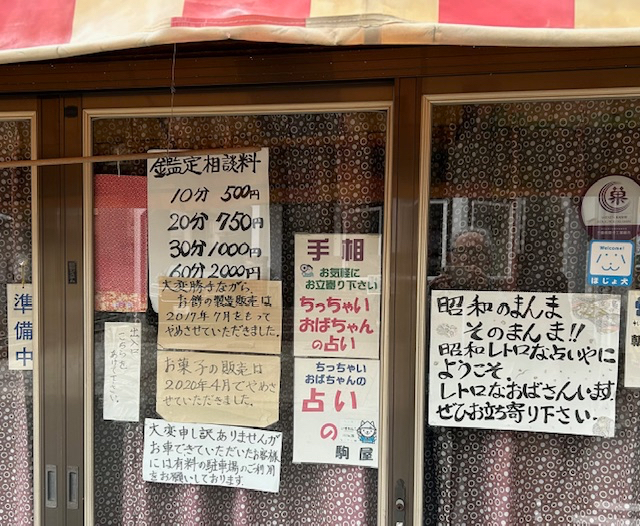 鑑定相談料
10分 500円
20分 750円
30分 1000円
60分 2000円
大変勝手ながら、
お餅の製造販売は
2017年7月をもって
やめさせていただきました。
お菓子の販売は
2020年4月でやめ
させていただきました。
大変申し訳ありませんが
お車できていただいたお客様
には有料の駐車場のご利用
をお願いしております。
準備中
出入口
こちらを
手相
お気軽に
お立寄り下さい
ちっちゃい
おばちゃん
の占い
ちっちゃい
おばちゃんの
占い
の
駒屋
昭和のまんま
そのまんま!!
昭和レトロな占いやに
ようこそ
レトロなおばさんいます。
ぜひお立ち寄り下さい。
菓
Welcome!
ほじょ犬